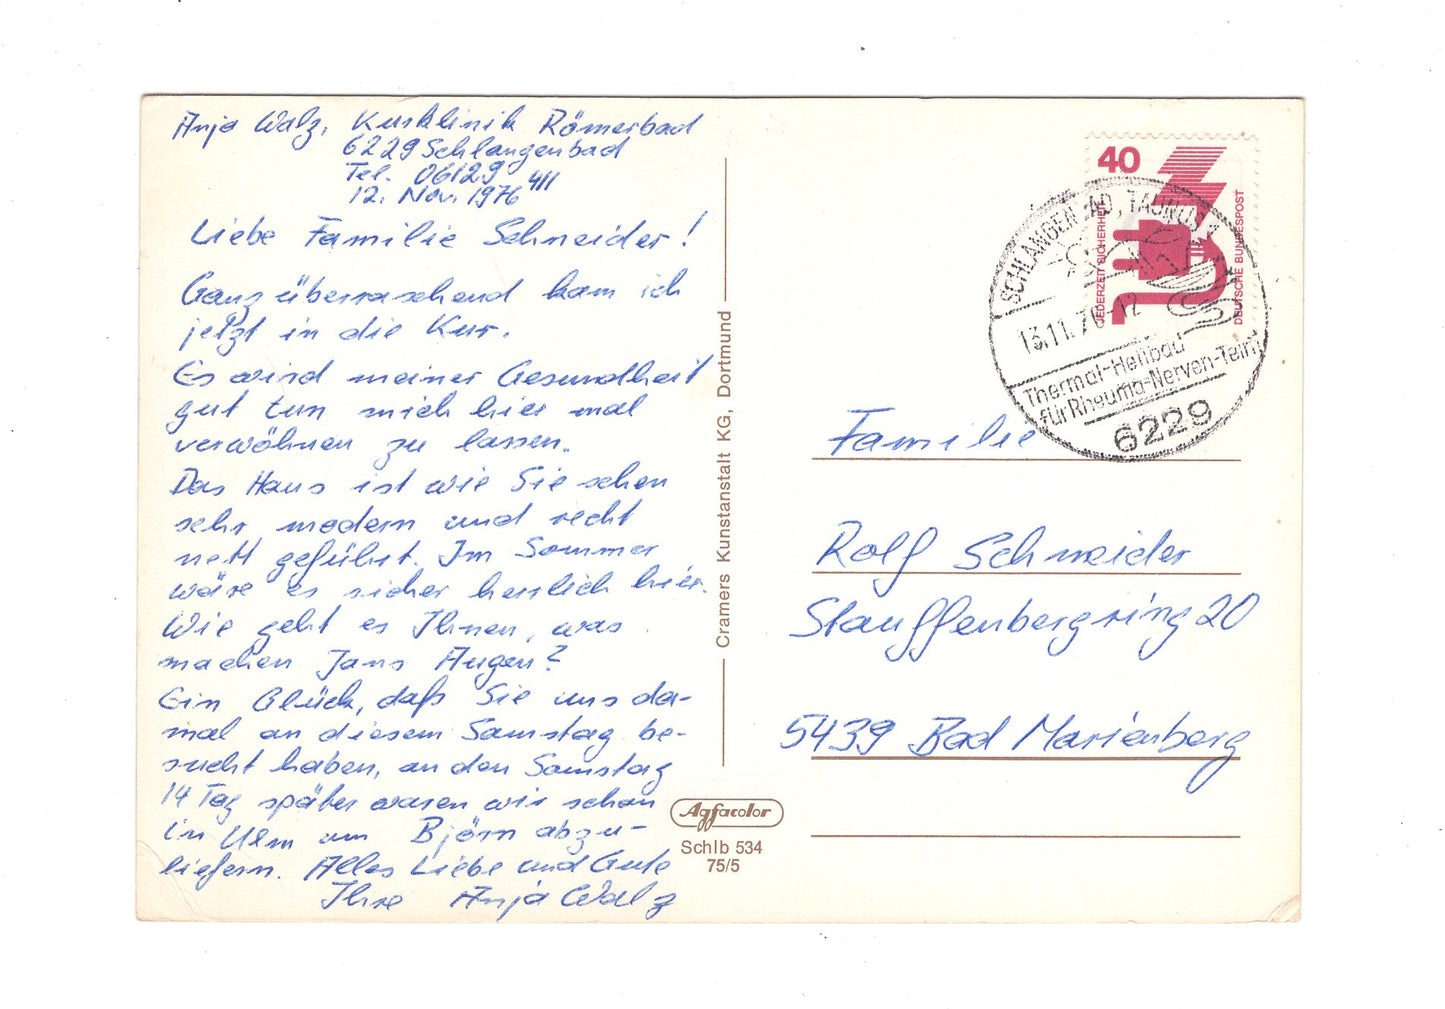 Anja Walz, Kurklinik Römerbad
6229 Schlangenbad
Tel. 06129 411
12. Nov. 1976
Liebe Familie Schneider!
Ganz überraschend kam ich
jetzt in die Kur.
Es wird meiner Gesundheit
gut tun mich hier mal
verwöhnen zu lassen.
Das Haus ist wie Sie sehen
sehr modern und recht
nett geführt. Im Sommer
wäre es sicher herrlich hier.
Wie geht es Ihnen, was
machen Jans Augen?
Ein Glück, daß Sie uns da-
mal an diesem Samstag be-
sucht haben, an den Samstag
14 Tag später waren wir schon
in Ulm um Björn abzu-
liefern. Alles Liebe und Gute
Ihre Anja Walz
Cramers Kunstanstalt KG, Dortmund
Agfacolor
Schlb 534
75/5
40
JEDERZEIT SICHERHEIT
DEUTSCHE BUNDESPOST
SCHLANGENBAD, TAUNUS
13.11.76-12
Thermal-Heilbad
für Rheuma-Nerven-Teint
6229
Familie
Rolf Schneider
Stauffenbergring 20
5439 Bad Marienberg